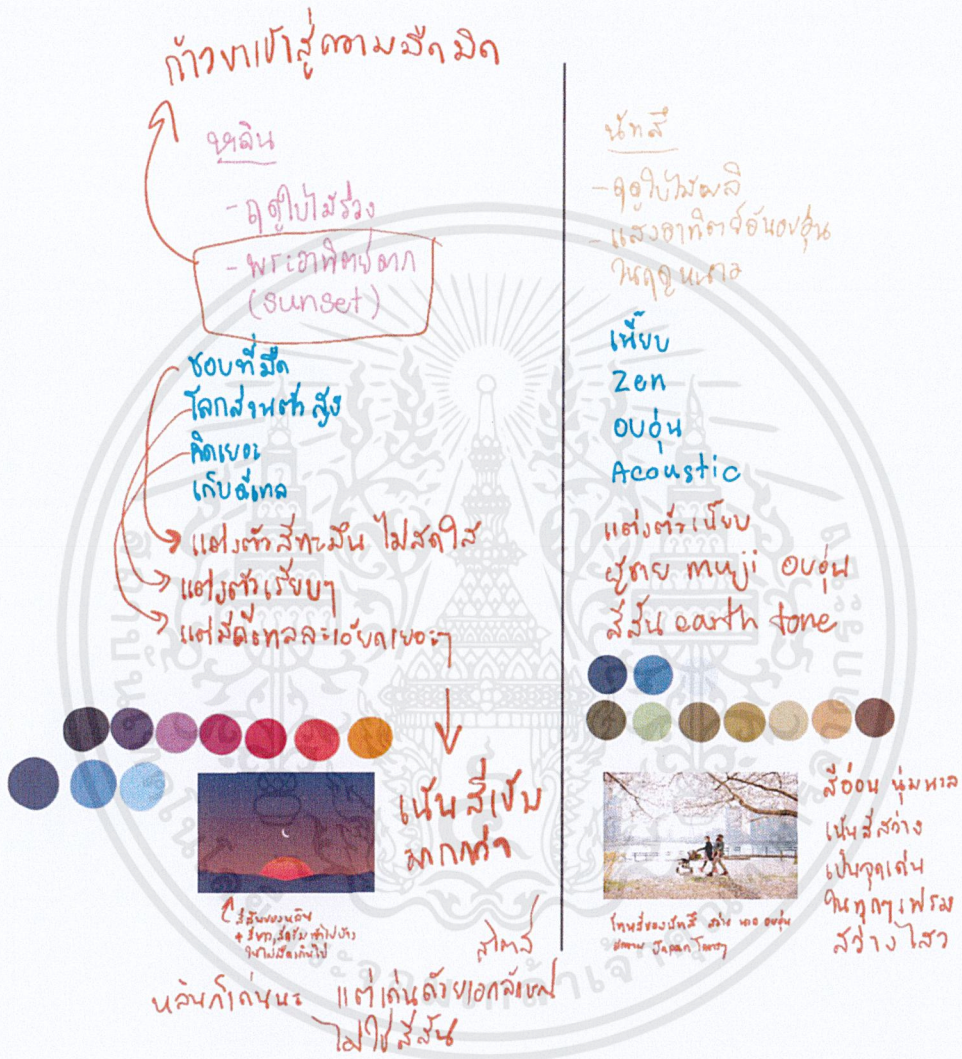 ก้าวขาเข้าสู่ความมืดมิด
หลิน
- ฤดูใบไม้ร่วง
- พระอาทิตย์ตก
(sunset)
ชอบที่มืด
โลกส่วนตัวสูง
คิดเยอะ
เก็บดีเทล
แต่งตัวสีทะมึน ไม่สดใส
แต่งตัวเรียบๆ
แต่มีดีเทลละเอียดเยอะๆ
เน้นสีเข้ม
มากกว่า
สีสันของหลิน
ให้ไม่มืดเกินไป
สไตล์
หลินก็เด่นนะ แต่เด่นด้วยเอกลักษณ์
ไม่ใช่สีสัน
นัทสึ
- ฤดูใบไม้ผลิ
- แสงอาทิตย์อันอบอุ่น
ในฤดูหนาว
เนี๊ยบ
Zen
อบอุ่น
Acoustic
แต่งตัวเนี๊ยบ
ผู้ชาย muji อบอุ่น
สีสัน earth tone
สีอ่อน นุ่มนวล
เน้นสีสว่าง
เป็นจุดเด่น
ในทุกๆ เฟรม
สว่างไสว
โทนสีของนัทสึ สว่าง นวล อบอุ่น
Japan โทนๆ